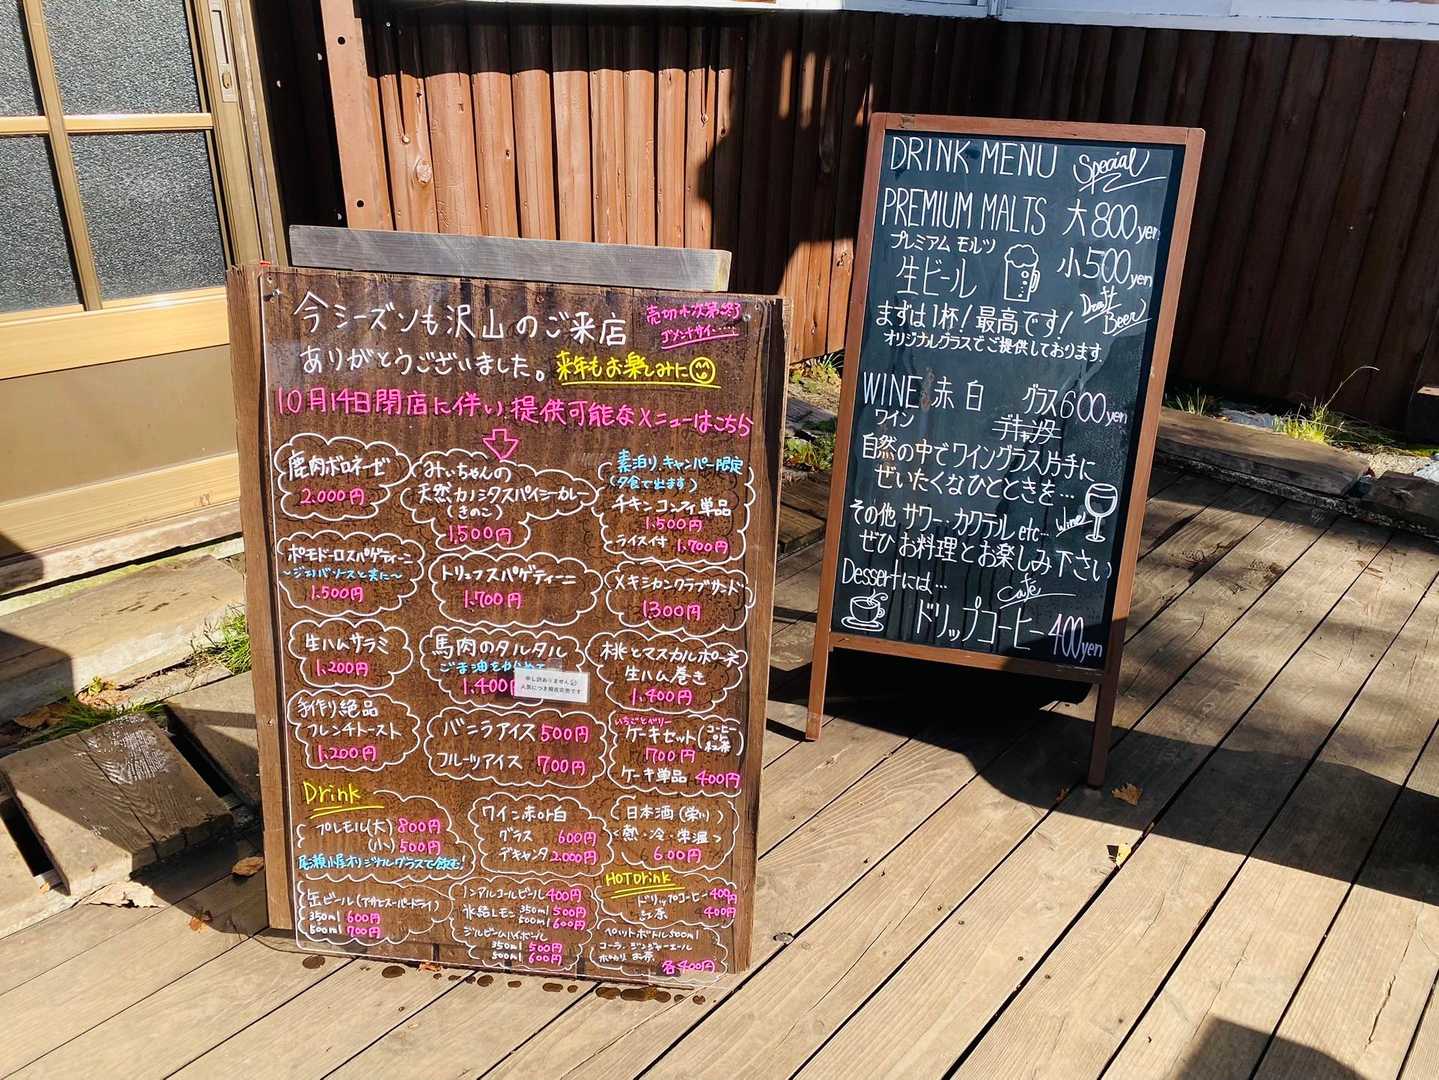 今シーズンも沢山のご来店
ありがとうございました。
来年もお楽しみに
売切れ次第終了
ゴメンナサイ・・・・
10月14日閉店に伴い提供可能なメニューはこちら
鹿肉ボロネーゼ
2.000円
みぃちゃんの
天然カノシタスパイシーカレー
(きのこ)
1,500円
素泊り、キャンパー限定
(夕食で出ます)
チキンコンフィ単品
1.500円
ライス付 1.700円
ポモドーロスパゲティーニ
1.500円
トリュフスパゲティーニ
1.700円
メキシカンクラブサンド
1300円
生ハムサラミ
1.200円
馬肉のタルタル
ごま油を
1.400円
申し訳ありません
人気につき毎度完売です
桃とマスカルポーネ
生ハム巻き
1.400円
手作り絶品
フレンチトースト
1.200円
バニラアイス 500円
フルーツアイス 700円
いちごとベリー
ケーキセット(コーヒー or 紅茶)
700円
ケーキ単品 400円
Drink
プレモル(大) 800円
(小) 500円
尾瀬小屋オリジナルグラスで飲む!
ワイン赤or白
グラス 600円
デキャンタ 2.000円
日本酒(栄川)
<熱・冷・常温>
600円
缶ビール(アサヒスーパードライ)
350ml 600円
500ml 700円
ノンアルコールビール 400円
氷結レモン 350ml 500円
500ml 600円
ジムビームハイボール
350ml 500円
500ml 600円
HOTDrink
ドリップコーヒー 400円
紅茶 400円
ペットボトル500ml
コーラ、ジンジャーエール
お茶
各400円
DRINK MENU Special
PREMIUM MALTS 大800yen
プレミアム モルツ
生ビール 小500yen
Draft
Beer
まずは1杯!最高です!
オリジナルグラスでご提供しております。
WINE 赤 白 グラス600yen
ワイン デキャンター
自然の中でワイングラス片手に
ぜいたくなひとときを…
Wine
その他 サワー・カクテル etc…
ぜひお料理とお楽しみ下さい
Dessertには… Cafe
ドリップコーヒー 400yen